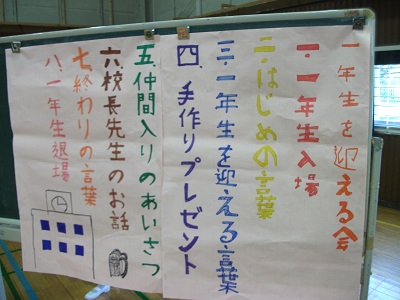 一年生を迎える会
一.一年生入場
二.はじめの言葉
三.一年生を迎える言葉
四.手作りプレゼント
五.仲間入りのあいさつ
六.校長先生のお話
七.終わりの言葉
八.一年生退場